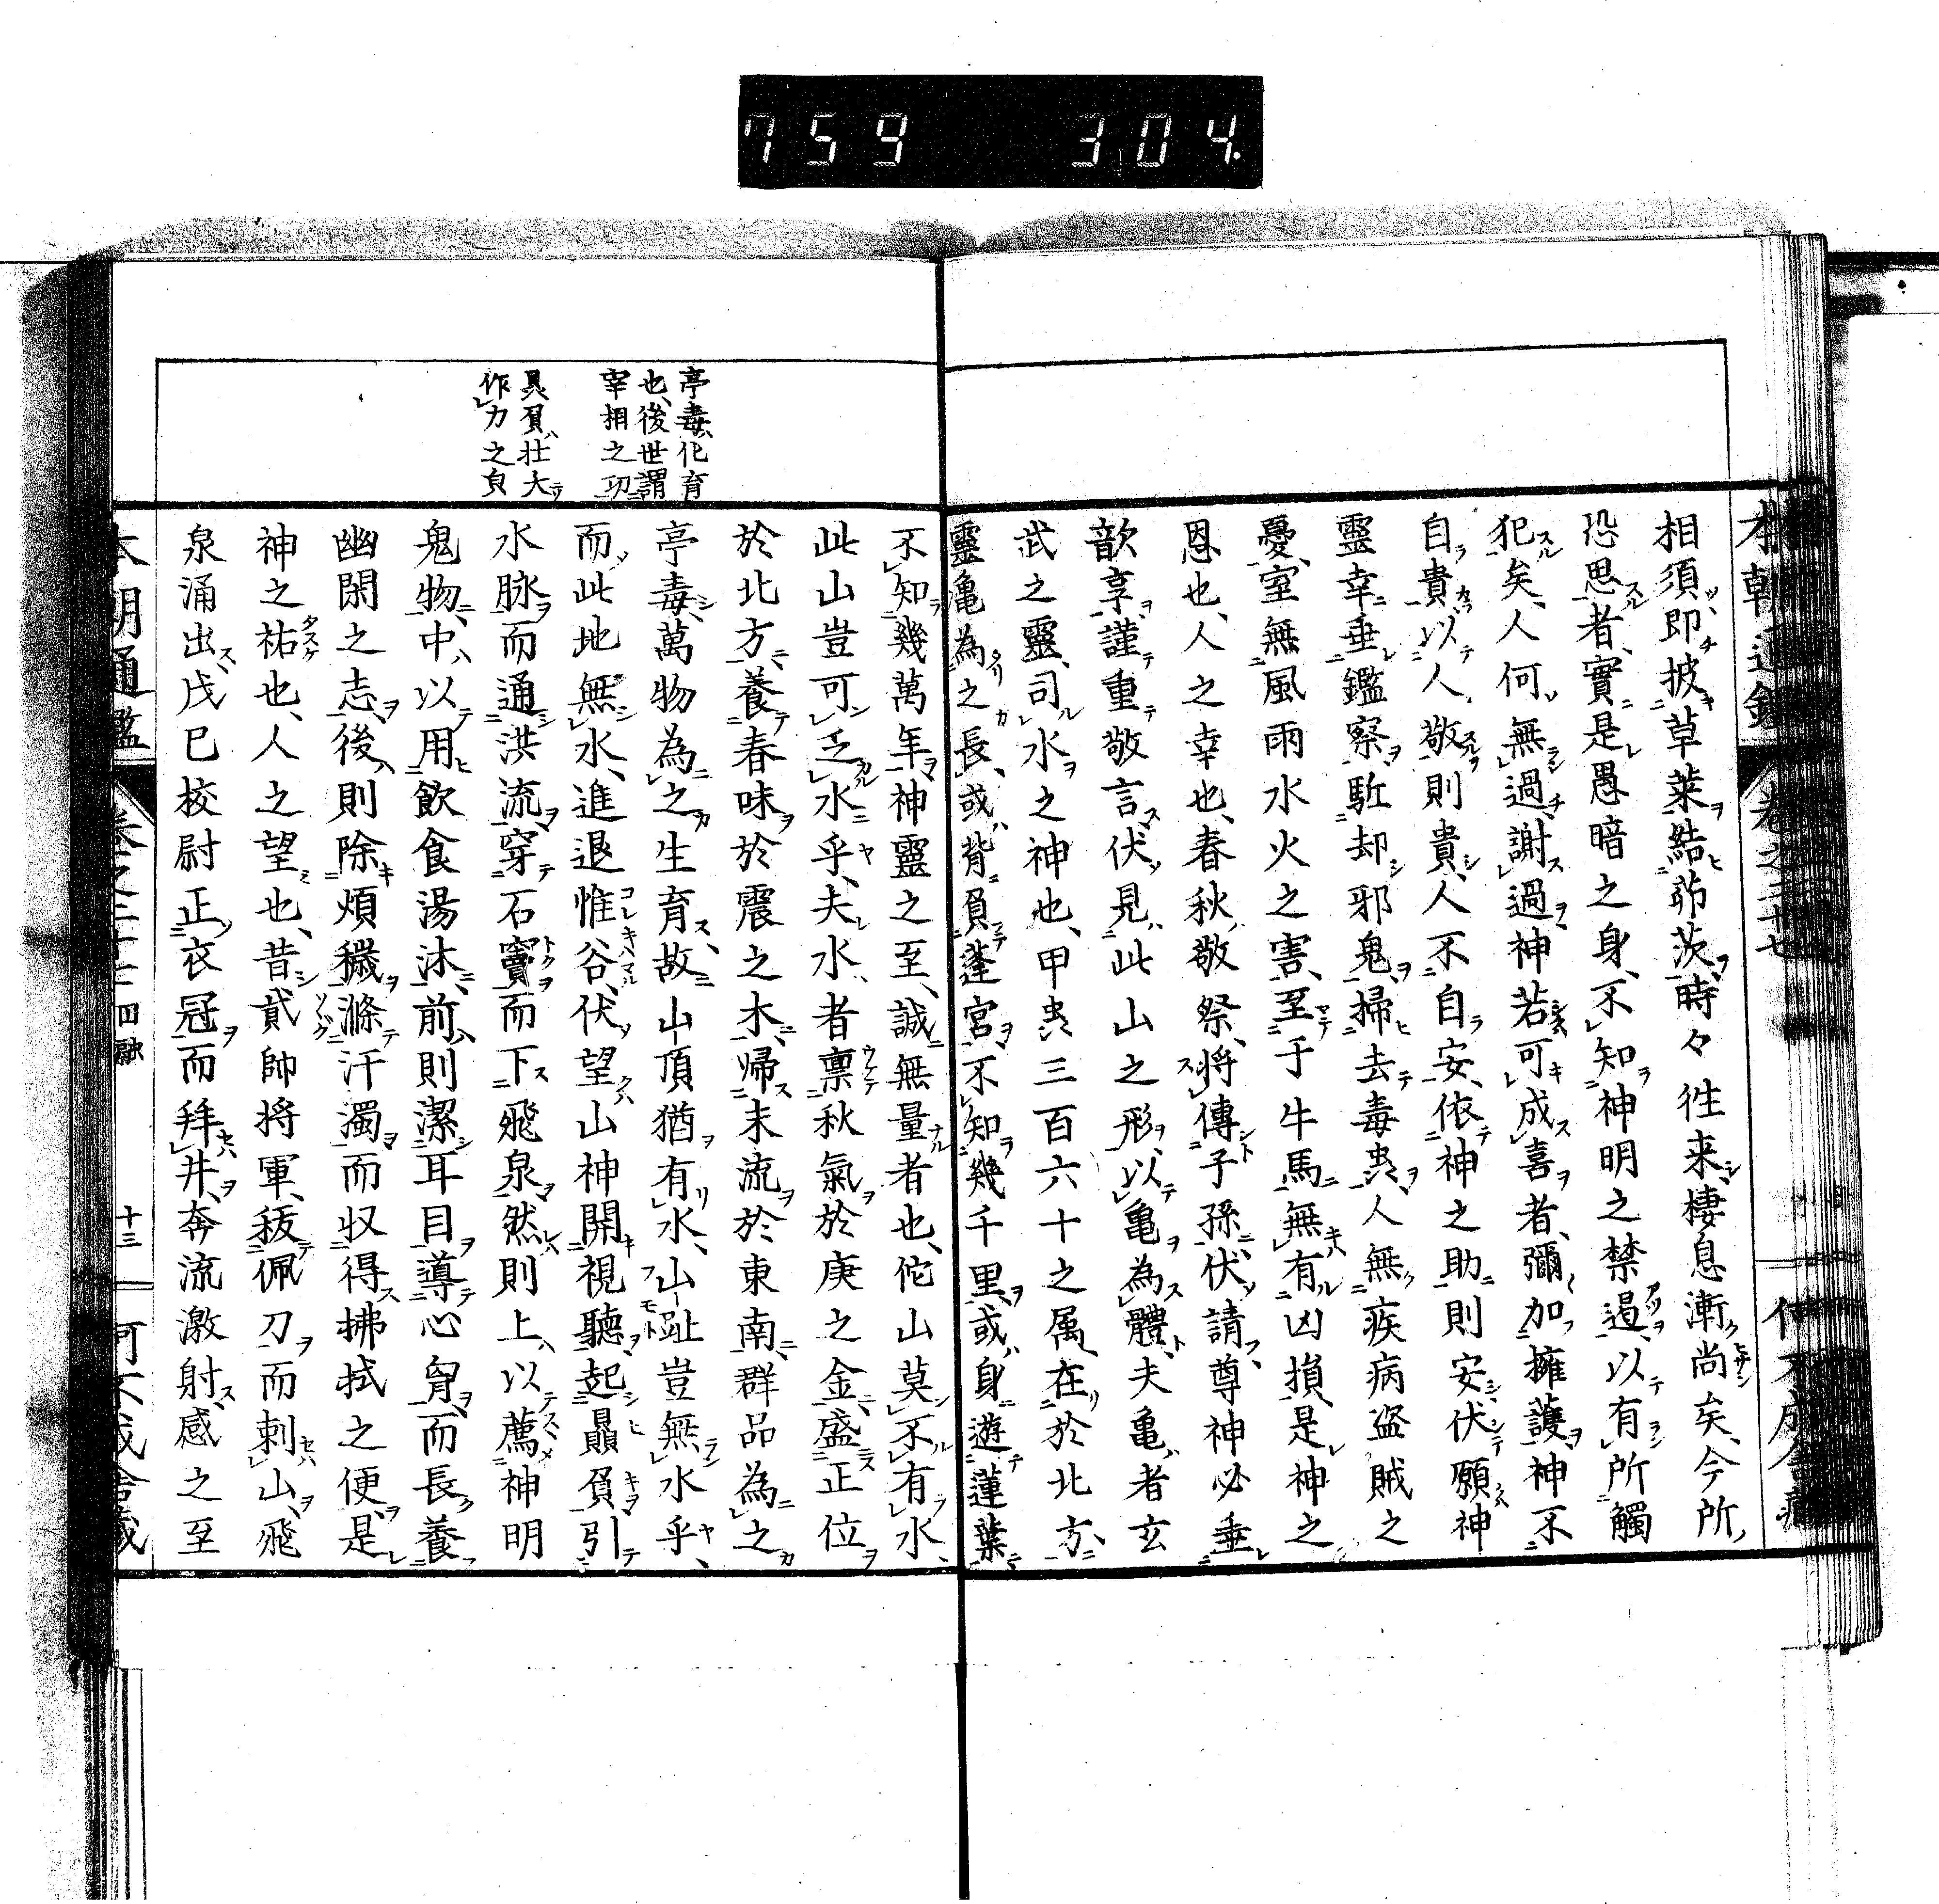 759 304.
相須即披草莱結茆茨時々徃来棲息漸尚矣今所
恐思者實是愚暗之身不知神明之禁遏以有所觸
犯矣人何無過謝過神若可成喜者彌加擁護神不
自貴以人敬則貴人不自安依神之助則安伏願神
靈幸垂鑑察駈却邪鬼掃去毒虫人無疾病盗賊之
憂室無風雨水火之害至于牛馬無有凶損是神之
恩也人之幸也春秋敬祭将傳子孫伏請尊神必垂
歆享謹重敬言伏見此山之形以亀為體夫亀者玄
武之靈司水之神也甲虫三百六十之属在於北方
靈亀為之長或背負蓬宮不知幾千里或身遊蓮葉
亭毒化育
也後世謂
宰相之功
贔屓壮大
作力之皃
不知幾萬年神靈之至誠無量者也佗山莫不有水
此山豈可乏水乎夫水者禀秋氣於庚之金盛正位
於北方養春味於震之木歸末流於東南群品為之
亭毒萬物為之生育故山頂猶有水山趾豈無水乎
而此地無水進退惟谷伏望山神開視聽起贔屓引
水脉而通洪流穿石竇而下飛泉然則上以薦神明
鬼物中以用飲食湯沐前則潔耳目導心胷而長養
幽閑之志後則除煩穢滌汗濁而収得拂拭之便是
神之祐也人之望也昔貳帥将軍秡佩刀而刺山飛
泉涌出戊巳校尉正衣冠而拜井奔流激射感之至
本朝通鑑 十三